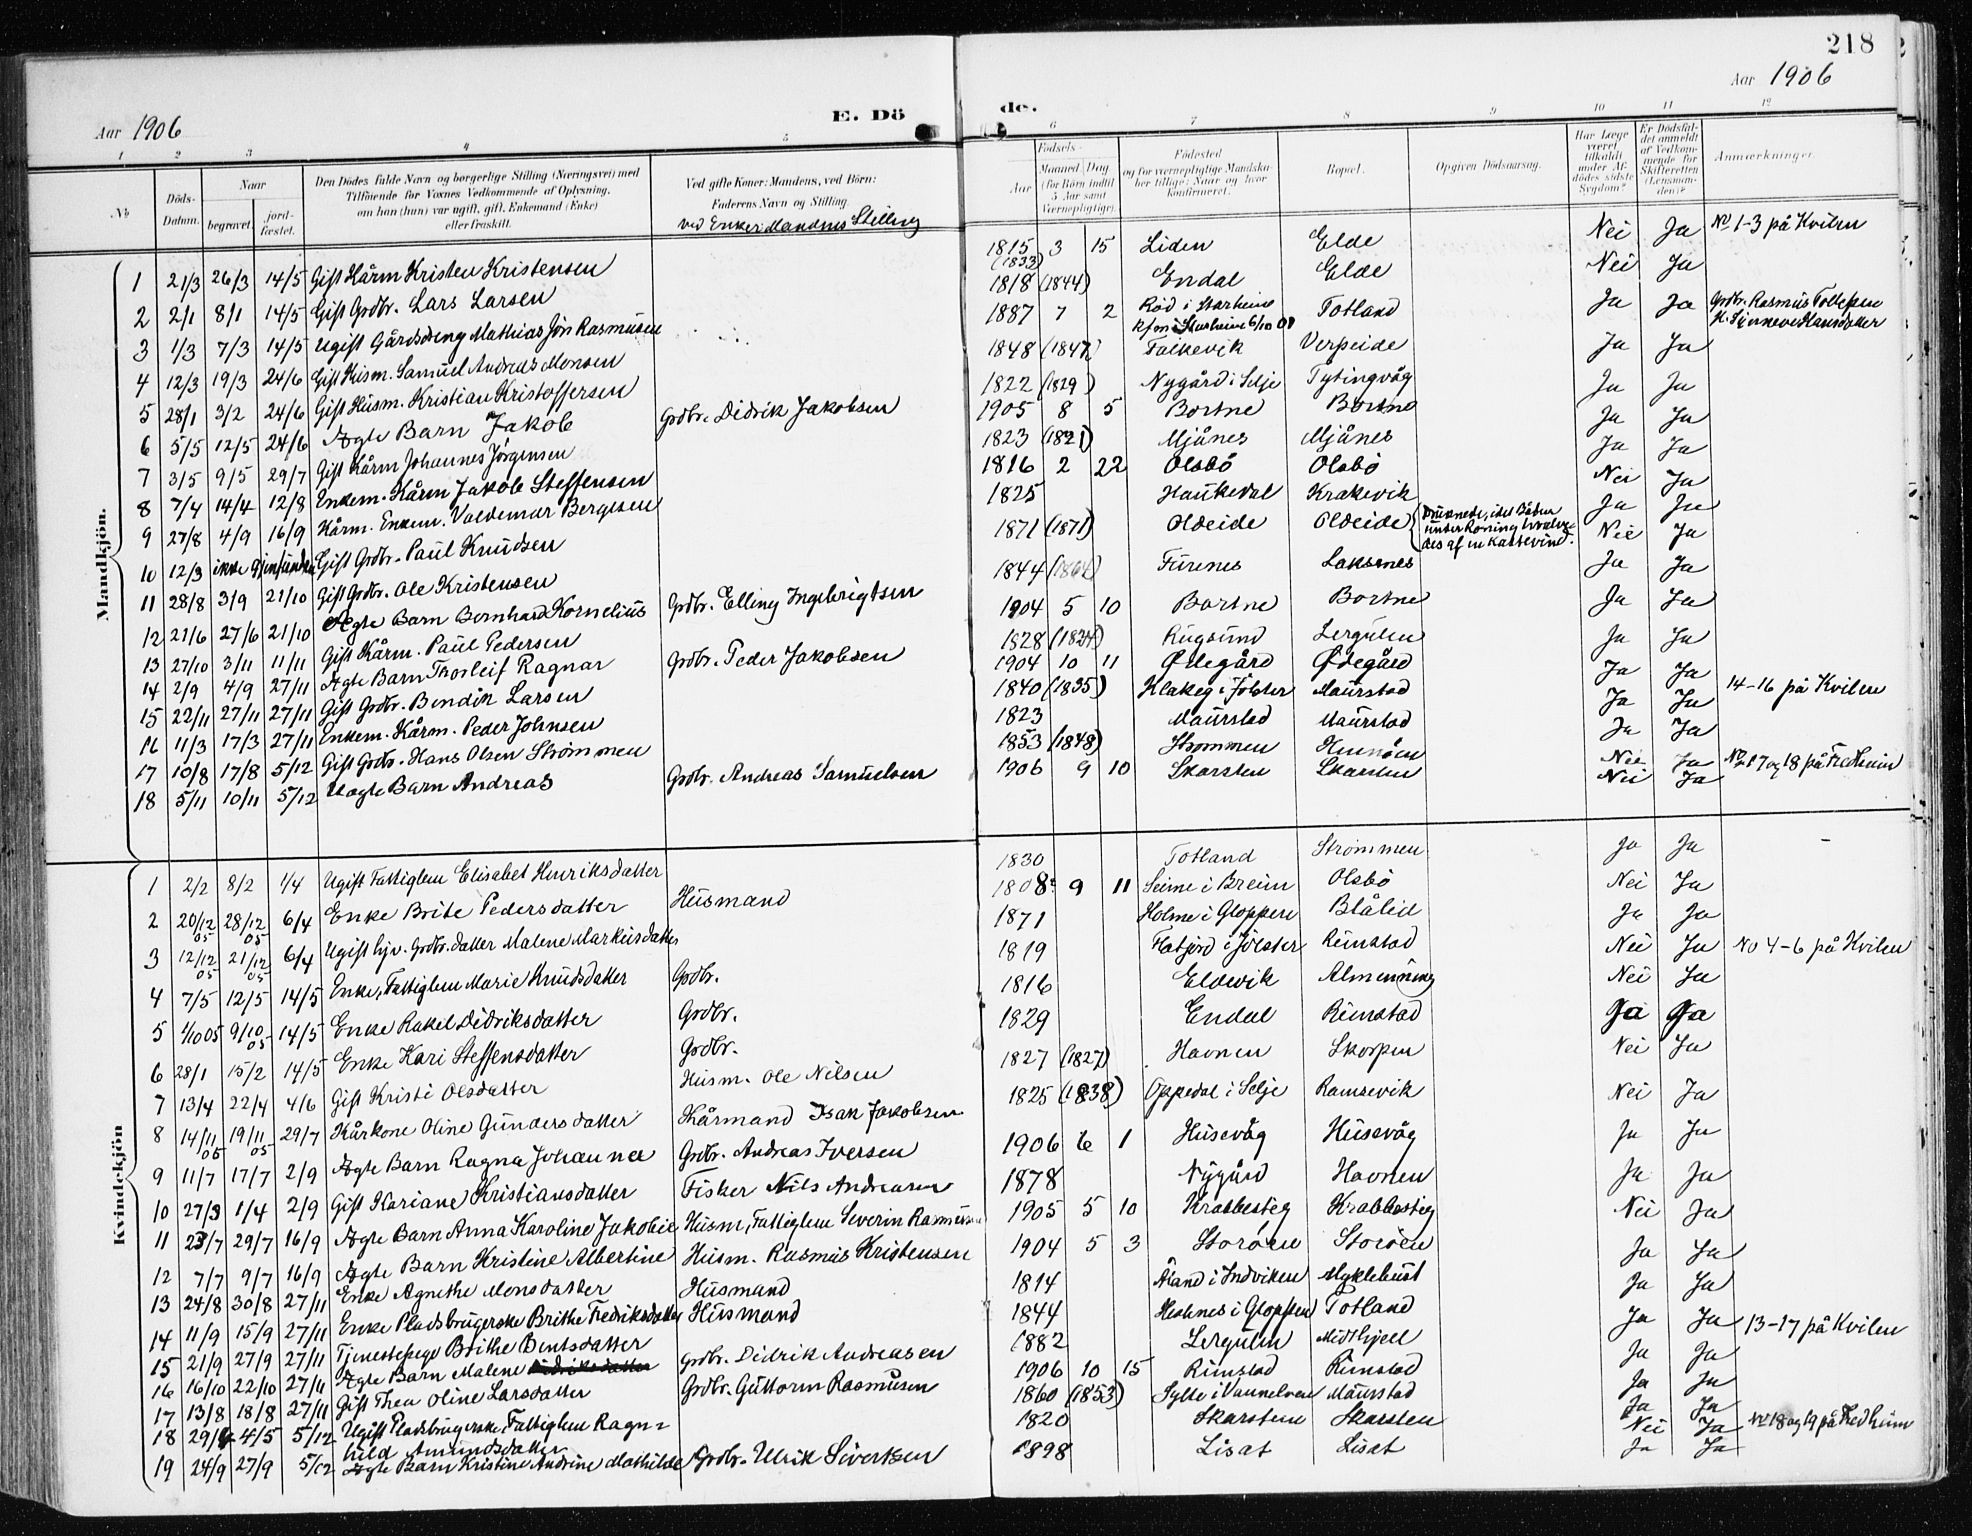 218
Aar 1906 E. Dö
de. Aar 1906
1 2 3 4 5
6 7 8 9 10 11 12
No Döds-Datum. Naar begravet. jordfæstet. Den Dödes fulde Navn og borgerlige Stilling (Næringsvei) med Tilföiende for Voxnes Vedkommende af Oplysning, om han (hun) var ugift, gift, Enkemand (Enke) eller fraskilt. Ved gifte Koner: Mandens, ved Börn: Faderens Navn og Stilling. ved Enker: Mandens Stilling
Födsels- Aar Maaned Dag (for Börn indtil 5 Aar samt Værnepligtige). Födested og for værnepligtige Mandskaber tillige: Naar og hvor konfirmeret. Bopæl. Opgiven Dödsaarsag. Har Læge været tilkaldt under Afdödes sidste Sygdom? Er Dödsfaldet anmeldt af Vedkommende for Skifteretten (Lensmanden)? Anmærkninger.
Mandkjön.
1 21/3 26/3 14/5 Gift Kårm Kristen Kristensen 1815 (1833) 3 15 Liden Elde Nei Ja No 1-3 på Kvilen
2 2/1 8/1 14/5 Gift Grdbr. Lars Larsen 1818 (1844) Endal Elde Nei Ja
3 1/3 7/3 14/5 Ugift Gårdsdreng Mathias Jön Rasmusen 1887 7 2 Röd i Starheim kfm i Starheim 6/10 01 Totland Ja Ja Grdbr. Rasmus Tollefsen
4 12/3 19/3 24/6 Gift Husm. Samuel Andreas Monsen 1848 (1847) Verpeide Ja Ja
5 28/1 3/2 24/6 Gift Husm. Kristian Kristoffersen 1822 (1829) Nygård i Selje Tytingvåg Ja Ja
6 5/5 12/5 24/6 Ægte Barn Jakob Grdbr. Didrik Jakobsen 1905 8 5 Bortne Bortne Ja Ja
7 3/5 9/5 29/7 Gift Kårm Johannes Jörgensen 1823 (1821) Mjånes Mjånes Ja Ja
8 7/4 14/4 12/8 Enkem. Kårm Jakob Steffensen 1816 2 22 Olsbö Olsbö Nei Ja
9 27/8 4/9 16/9 Kårm. Enkem. Valdemar Bergesen 1825 Haukedal Krakevik Ja Ja
10 12/3 ikke Gjenfunden Gift Grdbr. Paul Knudsen 1871 (1871) Oldeide Oldeide Druknede, idet Båden under Roning hvælvedes af en Kastevind. Nei Ja
11 28/8 3/9 21/10 Gift Grdbr. Ole Kristensen 1844 (1864) Furenes Laksenes Ja Ja
12 21/6 27/6 21/10 Ægte Barn Bernhard Kornelius Grdbr. Elling Ingebrigtsen 1904 5 10 Bortne Bortne Ja Ja
13 27/10 3/11 11/11 Gift Kårm. Paul Pedersen 1828 (1834) Rugsund Lergulen Ja Ja
14 2/9 4/9 27/11 Ægte Barn Thorleif Ragnar Grdbr. Peder Jakobsen 1904 10 11 Ødegård Ødegård Ja Ja
15 22/11 27/11 27/11 Gift Grdbr. Bendik Larsen 1840 (1835) Klakeg i Jölster Maurstad Ja Ja 14-16 på Kvilen
16 11/3 17/3 27/11 Enkem. Kårm. Peder Johnsen 1823 Maurstad Maurstad Ja Ja
17 10/8 17/8 5/12 Gift Grdbr. Hans Olsen Strømmen 1853 (1848) Strømmen Nei Ja No 17 og 18 på Fredheim
18 5/11 10/11 5/12 Uægte Barn Andreas Grdbr. Andreas Samuelsen 1906 9 10 Skarsten Skarsten Nei Ja
Kvindekjön
1 2/2 8/2 1/4 Ugift Fattiglem Elisabet Henriksdatter 1830 Totland Strømmen Ja Ja
2 20/12 05 28/12 05 6/4 Enke Brite Pedersdatter Husmand 1808 9 11 Seime i Breim Olsbö Nei Ja
3 12/12 05 21/12 05 6/4 Ugift hjv. Grdbr. datter Malene Markusdatter 1871 Holme i Gloppen Blålid Ja Ja
4 7/5 12/5 14/5 Enke, Fattiglem Marie Knudsdatter Grdbr. 1819 Flatjord i Jölster Rimstad Nei Ja No 4-6 på Kvilen
5 1/10 05 9/10 05 14/5 Enke Rakel Didriksdatter Grdbr. 1816 Eldevik Almenning Nei Ja
6 28/1 15/2 14/5 Enke Kari Steffensdatter Grdbr. 1829 Endal Rimstad Ja Ja
7 13/4 22/4 4/6 Gift Kristi Olsdatter Husm. Ole Nilsen 1827 (1827) Havnen Skorpen Nei Ja
8 14/11 05 19/11 05 29/7 Kårkone Oline Gundersdatter Kårmand Isak Jakobsen 1825 (1838) Oppedal i Selje Ramsevik Nei Ja
9 11/7 17/7 2/9 Ægte Barn Ragna Johanna Grdbr. Andreas Iversen 1906 6 1 Husevåg Husevåg Ja Ja
10 27/3 1/4 2/9 Gift Kariane Kristiansdatter Fisker Nils Andreasen 1878 Nygård Havnen Ja Ja
11 23/7 29/7 16/9 Ægte Barn Anna Karoline Jakobie Husm, Fattiglem Severin Rasmussen 1905 5 10 Krabbestig Krabbestig Nei Ja
12 7/7 9/7 16/9 Ægte Barn Kristine Albertine Husm. Rasmus Kristensen 1904 5 3 Storöen Storöen Ja Ja
13 24/8 30/8 27/11 Enke Agnethe Monsdatter Husmand 1814 Åland i Indviken Myklebust Ja Ja
14 11/9 15/9 27/11 Enke Pladsbrugerske Brithe Fredriksdatter Husmand 1844 i Gloppen Totland Ja Ja 13-17 på Kvilen
15 21/9 27/9 27/11 Tjenestepige Brithe Bentsdatter 1882 Lergulen Midthjell Ja Ja
16 16/10 22/10 27/11 Ægte Barn Malene Grdbr. Didrik Andreasen 1906 10 15 Rimstad Rimstad Ja Ja
17 13/8 18/8 27/11 Gift Thea Oline Larsdatter Grdbr. Guttorm Rasmusen 1860 (1853) Sylte i Vannelven Maurstad Ja Ja
18 29/4 4/5 5/12 Ugift Pladsbrugerske Fattiglem Ragn=hild Amundsdatter 1820 Skarstein Skarsten Nei Ja No 18 og 19 på Fredheim
19 24/9 27/9 5/12 Ægte Barn Kristine Andrine Mathilde Grdbr. Ulrik Sivertsen 1898 Lisat Lisat Ja Ja